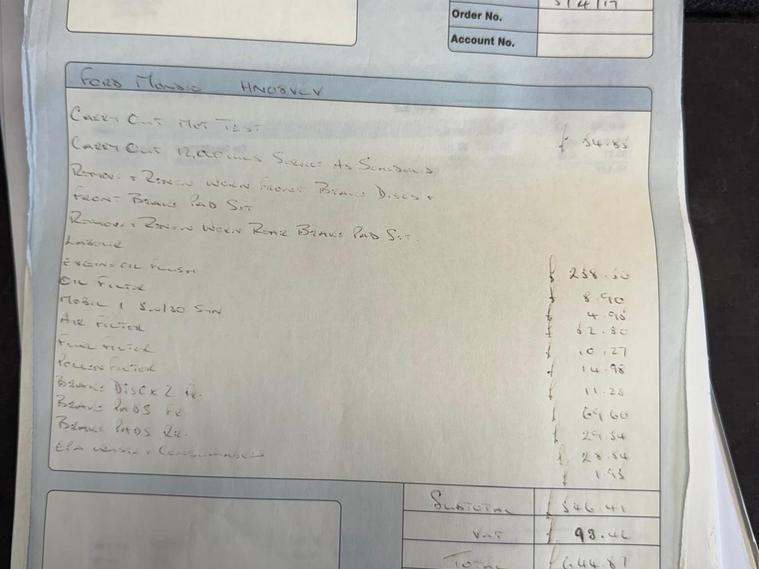 5/4/17
Order No.
Account No.
FORD MONDEO HN08VCV
CARRY OUT MOT TEST £ 54.85
CARRY OUT 12,000 MILES SERVICE AS SCHEDULED
REMOVE + RENEW WORN FRONT BRAKE DISCS +
FRONT BRAKE PAD SET
REMOVE + RENEW WORN REAR BRAKE PAD SET.
LABOUR £ 238.50
ENGINE OIL FLUSH £ 8.90
OIL FILTER £ 4.95
MOBIL 1 SYN £
AIR FILTER £ 10.27
FUEL FILTER £ 14.98
POLLEN FILTER 11.28
BRAKE DISC X 2 FR. £ 69.60
BRAKE PADS FR £ 29.54
BRAKE PADS RR. £ 28.54
EPA + CONSUMABLES £ 1.95
SUBTOTAL £ 546.41
VAT £ 98.46
TOTAL £ 644.87